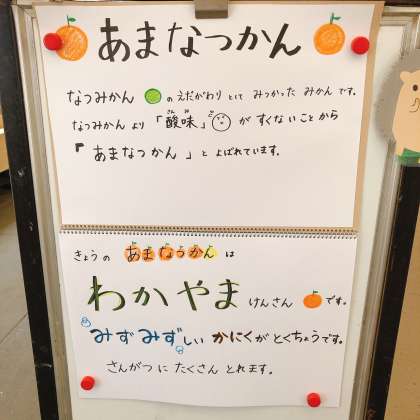 あまなつかん
なつみかん の えだがわり として みつかった みかん です。
なつみかん より 「酸味」 が すくない ことから
さんみ
「あまなつかん」 と よばれています。
きょうの あまなつかん は
わかやま けんさん です。
みずみずしい かにくが とくちょうです。
さんがつ に たくさん とれます。